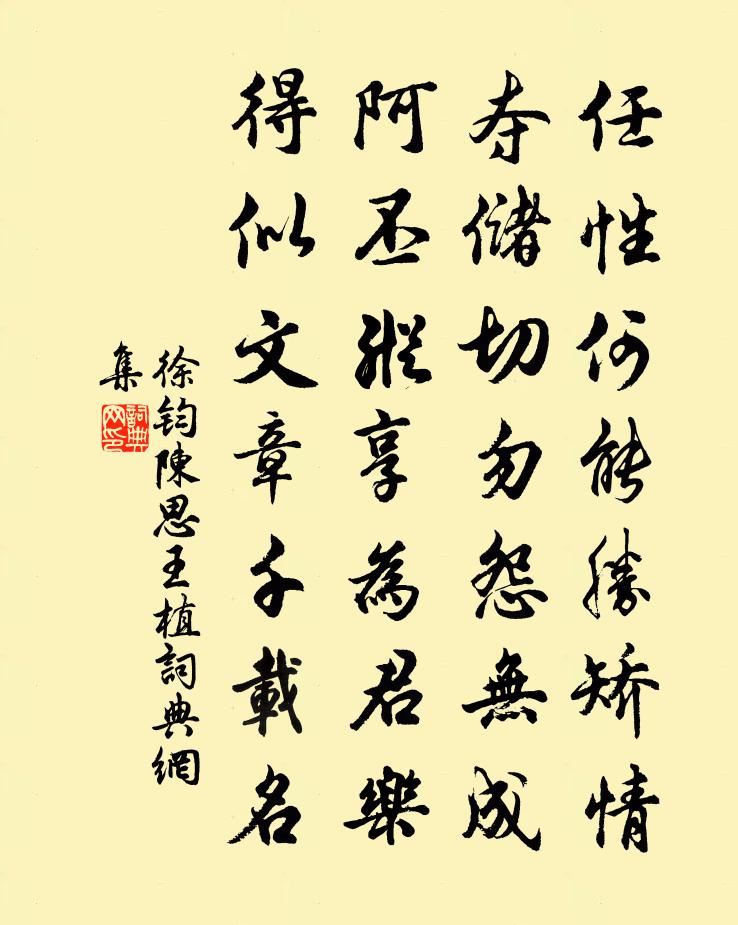 任性何能勝矫情
夺儲切勿怨無成
阿丕縱享為君樂
得似文章千載名
徐鈞陳思王植詞典網
集
詞典
网印